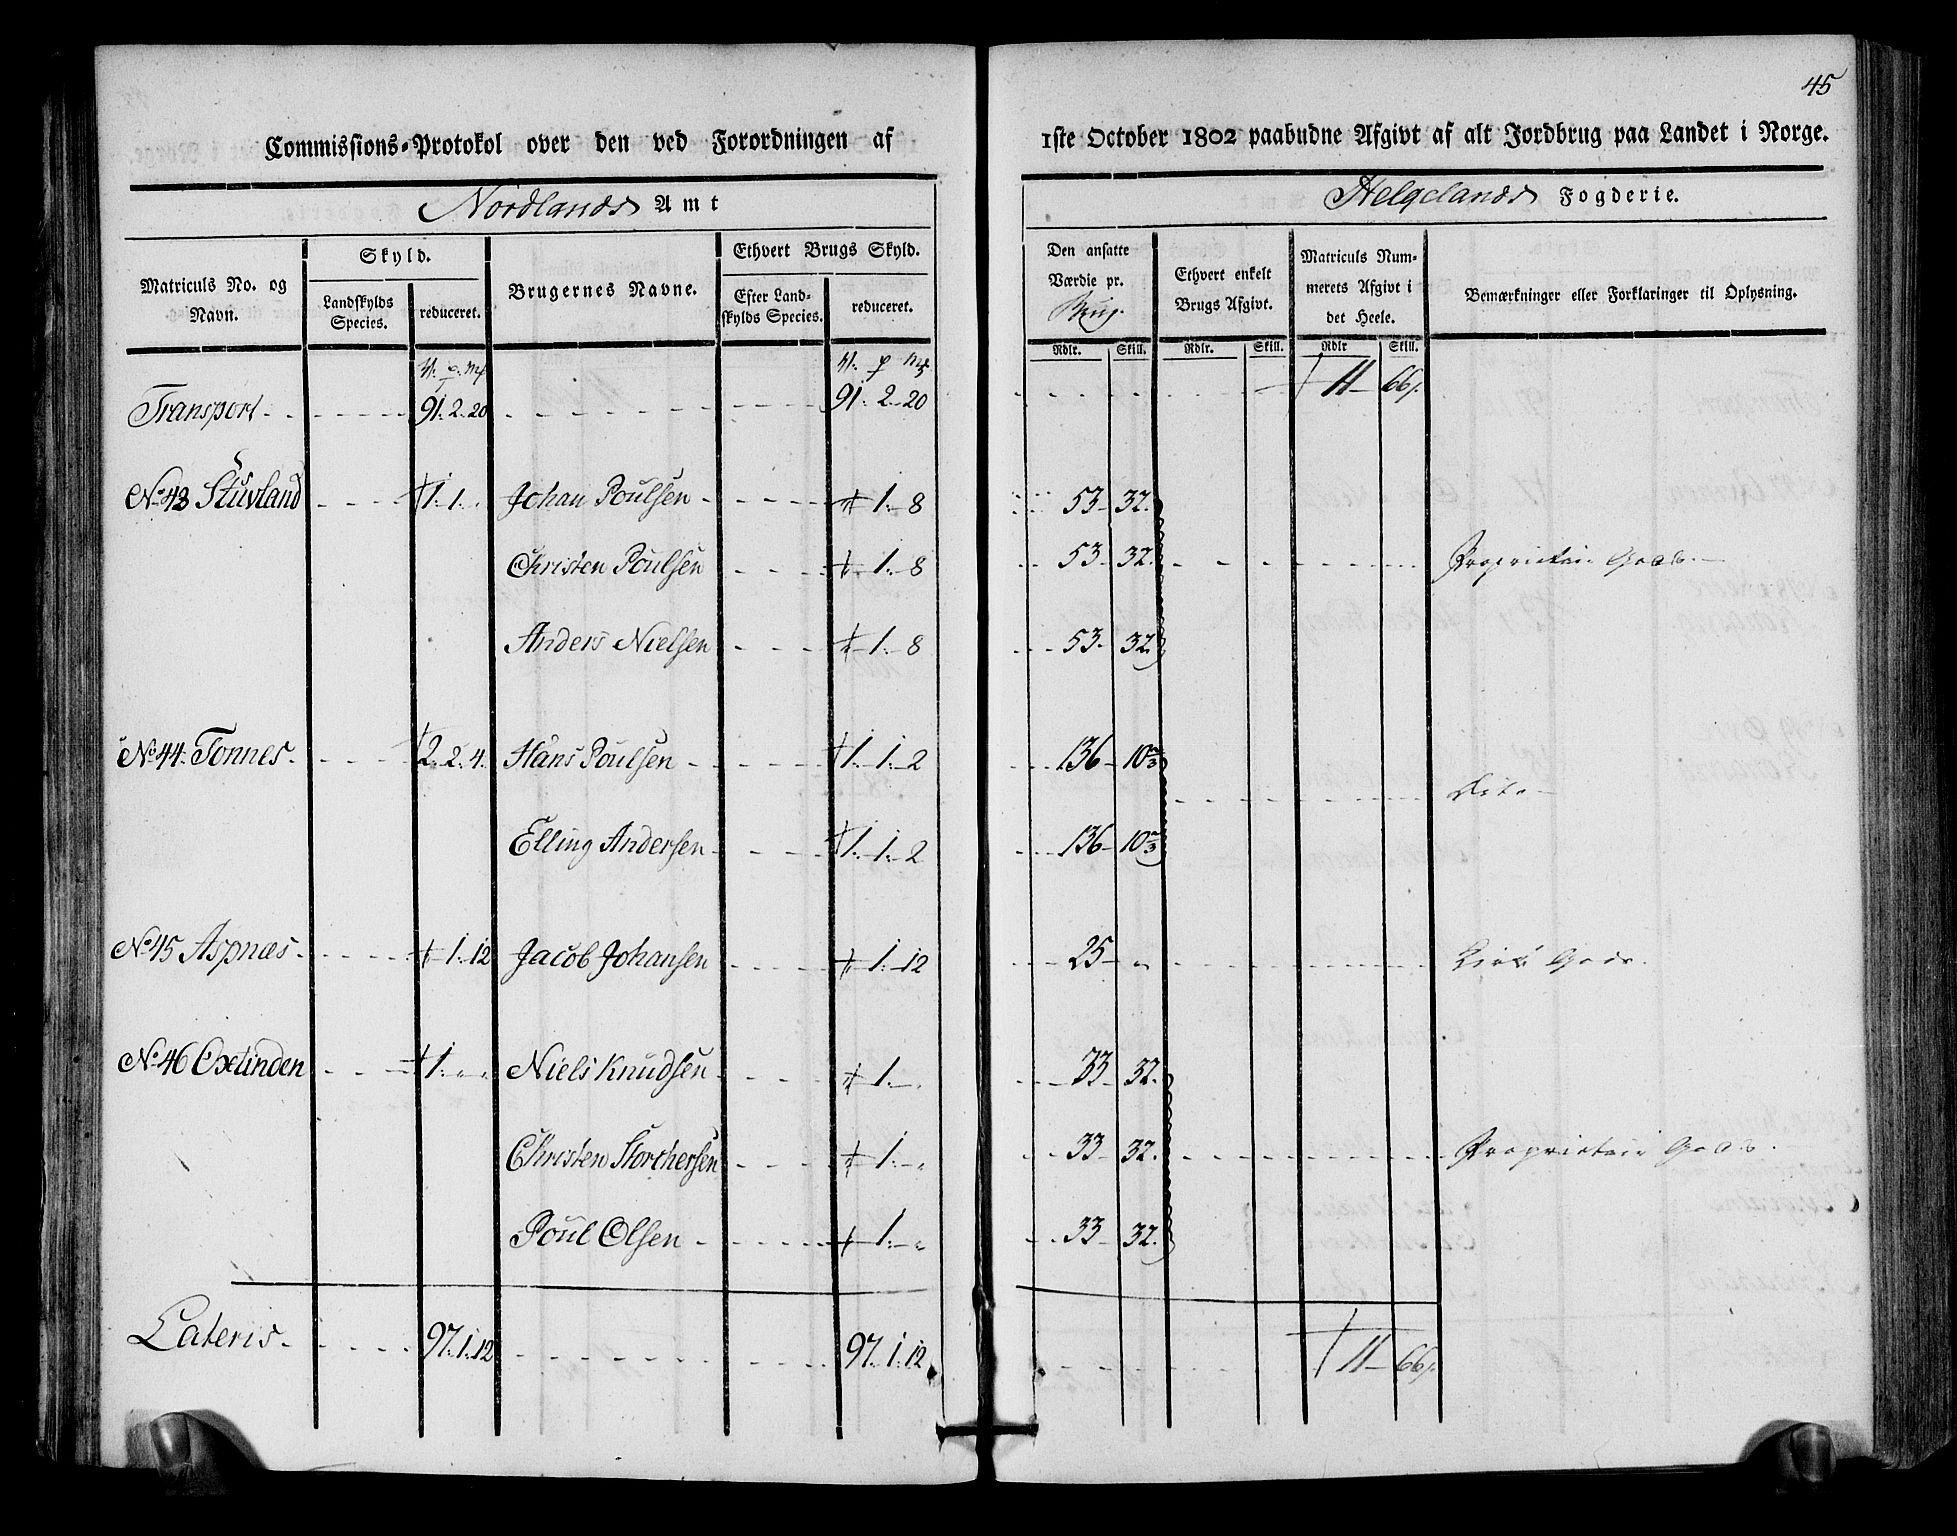 45
Commissions-Protokol over den ved Forordningen af 1ste October 1802 paabudne Afgivt af alt Jordbrug paa Landet i Norge.
Nordlands Amt Helgelands Fogderie.
Matriculs No. og Navn. Skyld. Landskylds Species. reduceret. Brugernes Navne. Ethvert Brugs Skyld. Efter Landskylds Species. reduceret. Den ansatte Værdie pr. Brug. Ethvert enkelt Brugs Afgivt. Matriculs Nummerets Afgivt i det Heele. Bemærkninger eller Forklaringer til Oplysning.
Rdlr. Skill. Rdlr. Skill. Rdlr Skill.
Transport 91. 2. 20 91. 2. 20 11 66
No 43 Stuvland 1. 1. Johan Poulsen 1. 8 53 32.
Christen Poulsen 1. 8 53 32. Proprietair Gods.
Anders Nielsen 1. 8 53 32.
No 44. Tonnes. 2. 2. 4. Hans Poulsen 1. 1. 2 136 10 2/3
Dito
Elling Andersen 1. 1. 2 136 10 2/3
No 45 Aspnæs 1. 12 Jacob Johansen 1. 12 25 „ Kirke Gods.
No 46 Oxetinden 1. „ „ Niels Knudsen 1. „ 33 32.
Christen Storchersen 1. „ 33 32. Proprietair Gods.
Poul Olsen 1. „ 33 32.
Lateris 97. 1. 12 97. 1. 12 11 66